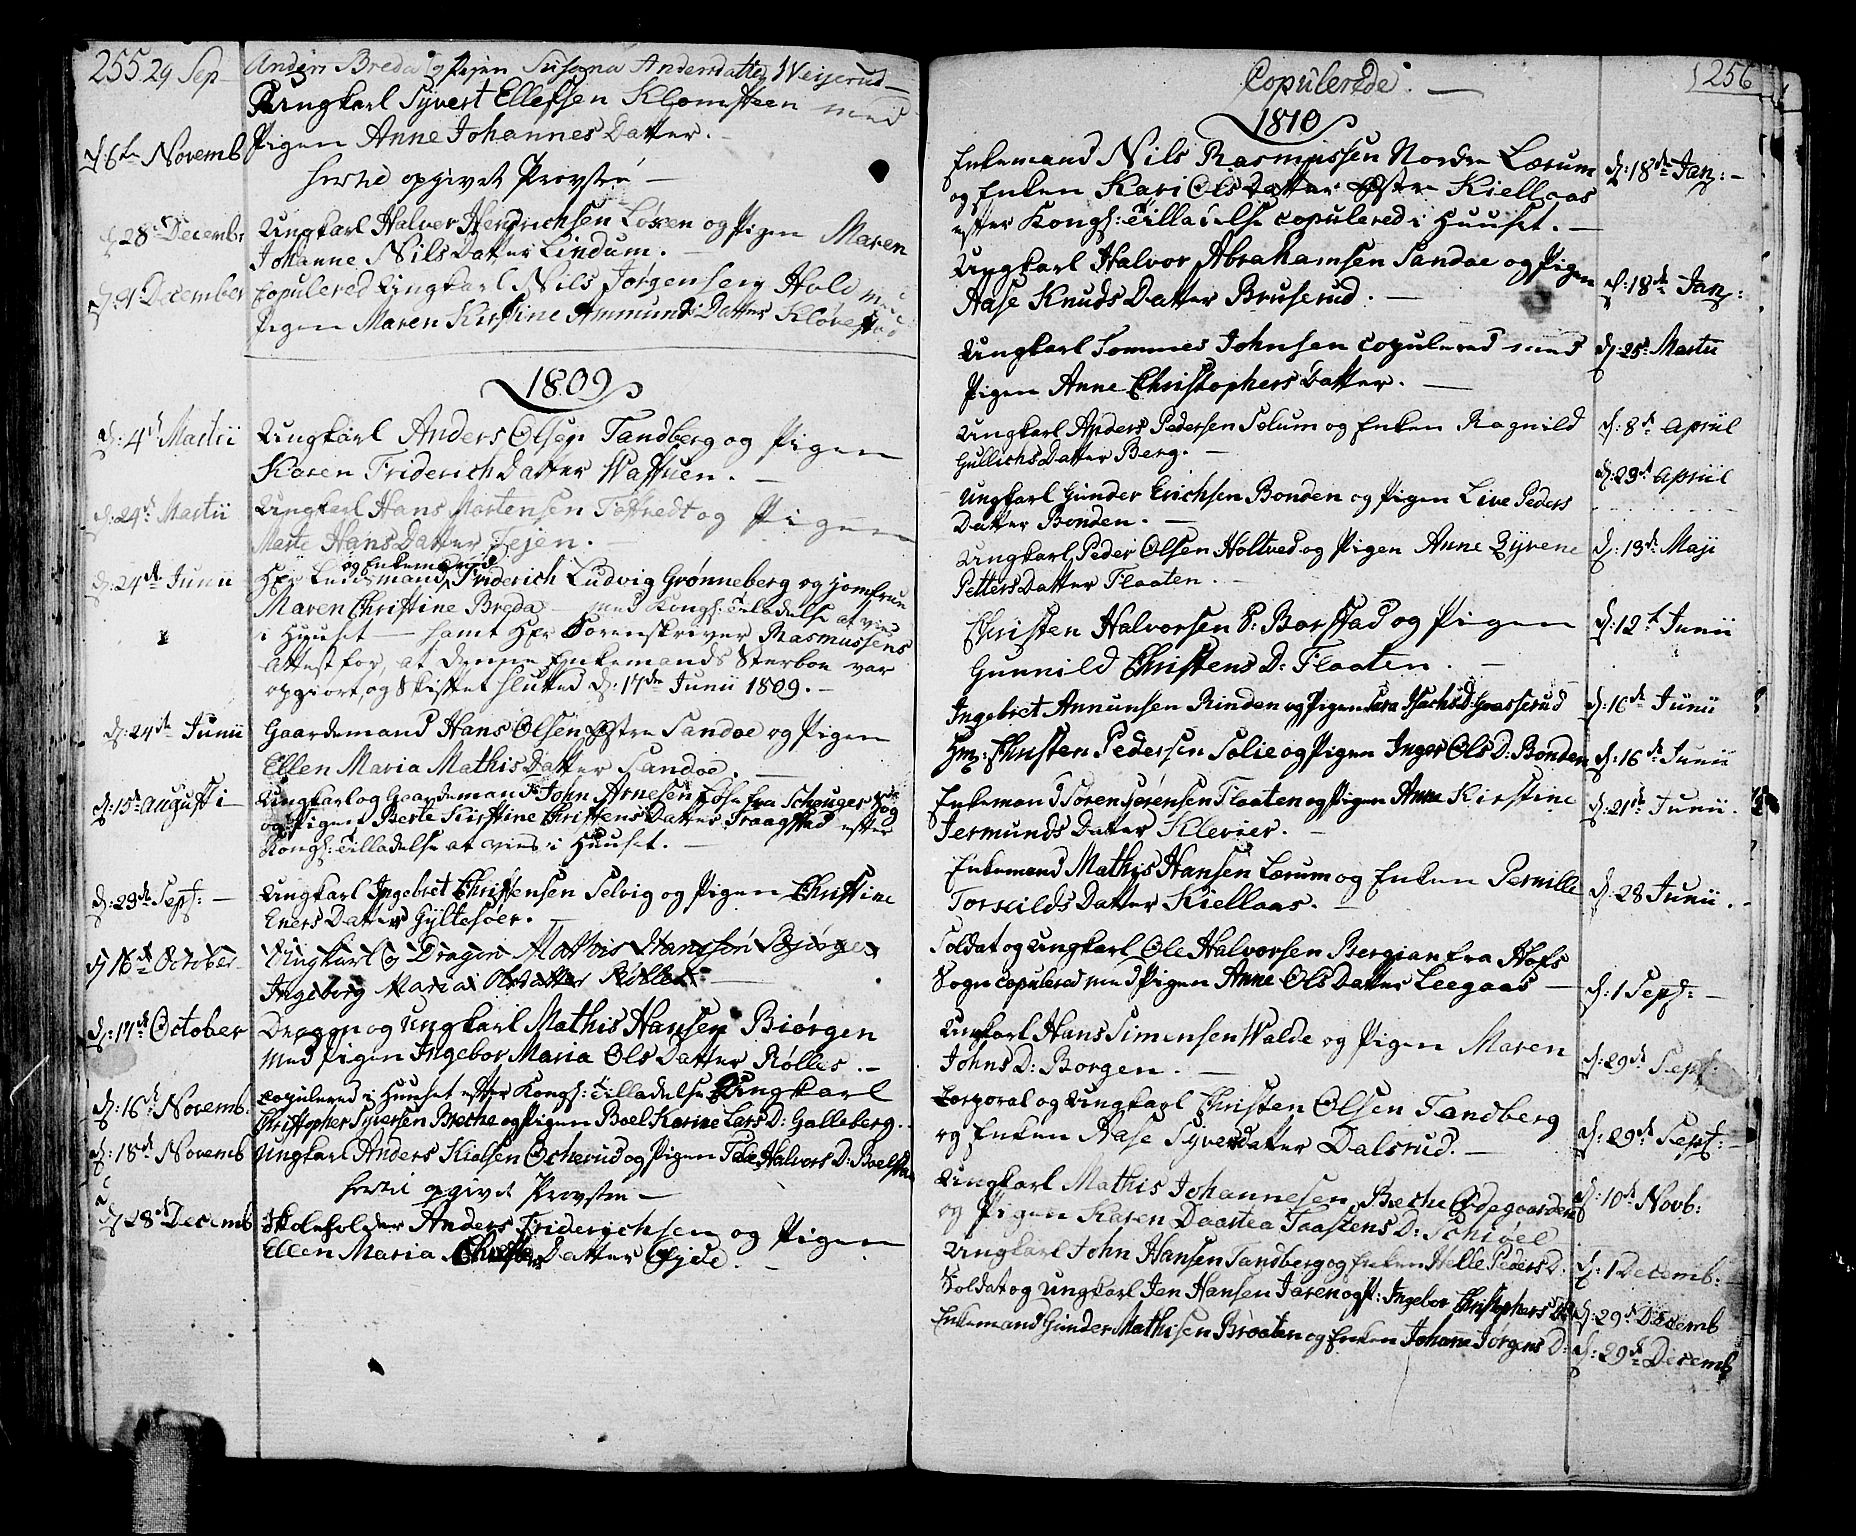 255. 29 Sep– Anders Breda og Pigen Susana Andersdatter Weijerud –
Ungkarl Syvert Ellefsen Klomsteen med
d: 6te Novemb Pigen Anne Johannes Datter. –
hertil opgivet Provsten –
d: 28de Decembr Ungkarl Halvor Hendrichsen Løken og Pigen Maren
Johanne Nils Datter Lindum. –
December Copulered Ungkarl Nils Jørgensen Hole med
Pigen Maren Kirstine Ammunds Datter Kløvestad
1809
d: 4de Martii Ungkarl Anders Olsen Tandberg og Pigen
Karen Friderich Datter Wattuen. –
d: 24de Martii Ungkarl Hans Mortensen Toffstedt og Pigen
Marte Hans Datter Tejen. –
og Enkemand
d: 24de Junii Hr Lendsmand Friderich Ludvig Grønneberg og Jomfrue
Maren Christine Breda – med Kongl: Tilladelse at vies
i Huuset – samt Hr Sorenskriver Rasmussens
Attest for, at denne Enkemands Sterboe var
opgiort, og Skiftet sluttet d: 17de Junii 1809. –
d: 24de Junii Gaardemand Hans Olsen Østre Sandøe og Pigen
Ellen Maria Mathis Datter Sandoe. –
d: 15de Augusti – Ungkarl og Gaardemand John Arnesen Fosse fra Schouger Sogn
og Pigen Berte Kirstine Christens Datter Kraagstad efter
Kongl: Tilladelse at vies i Huuset. –
d: 29de Sept: – Ungkarl Ingebret Christensen Selvig og Pigen Christine
Eners Datter Gyltesøer. –
d: 16de October Ungkarl og Dragon Mathis Hanssen Bjørgen
Ingeborg Maria Olsdatter Røllet: –
d: 17de October Dragon og Ungkarl Mathis Hansen Biørgen
med Pigen Ingebor Maria Ols Datter Rølles. –
d: 16de Novemb. copulered i Huuset efter Kongl: Tilladelse Ungkarl
Christopher Syversen Breche og Pigen Boel Karine Lars D: Galleberg. –
d: 18de Novemb Ungkarl Anders Kielsen Ocherud og Pigen Tale Halvors D: Boelstad
hertil opgivet Provsten –
d: 28de Decemb Skoleholder Anders Friderichsen og Pigen
Ellen Maria Christens Datter Gjde. –
256
Copulerede. –
1810
Enkemand Nils Rasmussen Nordre Lærum d: 18de Jan: –
og Enken Kari Ols Datter Østre Kiellaas
efter Kongl: Tilladelse copulered i Huuset. –
Ungkarl Halvor Abrahamsen Sandøe og Pigen d: 18de Jan:
Aase Knuds Datter Bruserud. –
Ungkarl Tommes Johnsen copulered med d: 25de Martii
Pigen Anne Christophers Datter. –
Ungkarl Anders Pedersen Solum og Enken Ragnild d: 8de Apriil
Gullichs Datter Berg. –
Ungkarl Gunder Erichsen Bonden og Pigen Live Peders d: 23de Apriil
Datter Bonden. –
Ungkarl Peder Olsen Holtved og Pigen Anne Syrene d: 13de Maji
Petters Datter Flaaten. –
Christen Halvorsen S: Borstad og Pigen d: 12te Junii
Gunnild Christens D: Flaaten. –
Ingebret Annunsen Rinden og Pigen Sara Isachs D: Graaserud d: 16de Junii
Gm: Christen Pedersen Solie og Pigen Inger Ols D: Bonden d: 16de Junii
Enkemand Søren Sørensen Flaaten og Pigen Anne Kirstine d: 21de Junii.
Jermunds Datter Klevier. –
Enkemand Mathis Hansen Lærum og Enken Pernille d: 28 Junii. –
Torkilds Datter Kiellaas. –
Soldat og Ungkarl Ole Halvorsen Bergian fra Hofs
Sogn copulered med Pigen Anne Ols Datter Leegaas – d: 1 Sept: –
Ungkarl Hans Simensen Walde og Pigen Maren d: 29de Sept:
Johns D: Borgen. –
Corporal og Ungkarl Christen Olsen Tandberg d: 29de Sept: –
og Enken Aase Syversdatter Dalsrud. –
Ungkarl Mathis Johannesen Breche Ødegaarden d: 10de Novb:
og Pigen Karen Daartea Taastens D: Schiøel
Ungkarl John Hansen Sandberg og Enken Helle Peders D: d: 1 Decemb:
Soldat og Ungkarl Jen Hansen Jaren og P: Ingebor Christophers D: d: 29de Decemb
Enkemand Gunder Mathisen Braaten og Enken Johane Jørgens D: d: 29de Decemb